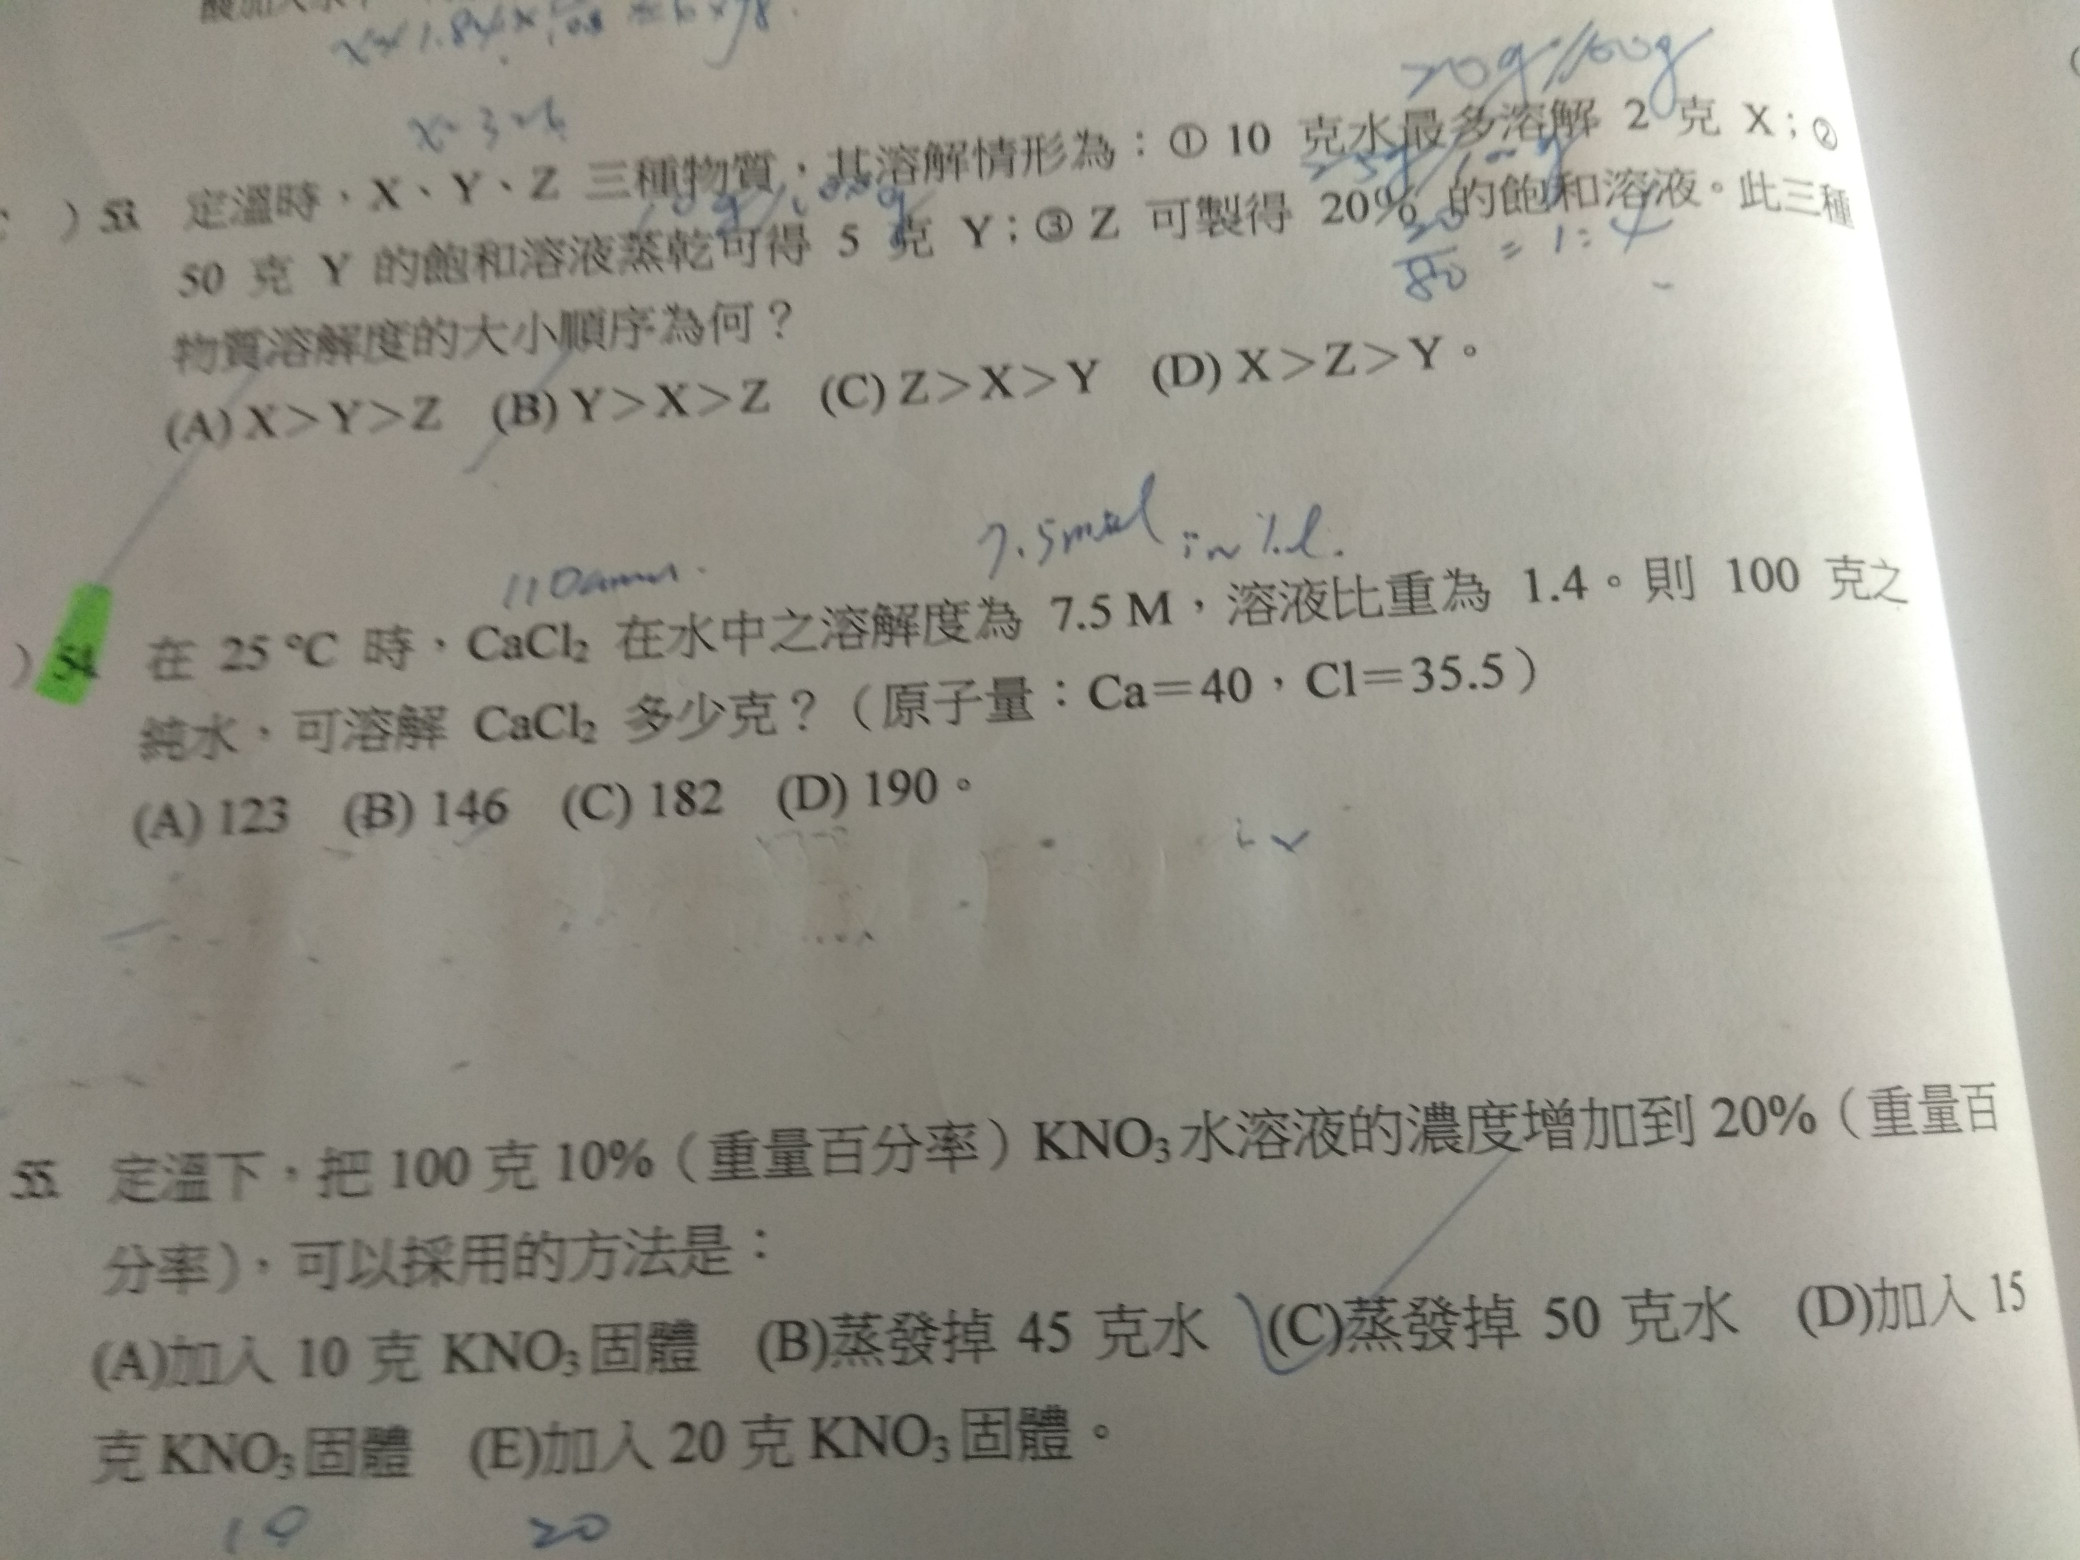 x=3.6
53. 定溫時，X、Y、Z 三種物質，其溶解情形為：① 10 克水最多溶解 2 克 X；②
50 克 Y 的飽和溶液蒸乾可得 5 克 Y；③ Z 可製得 20% 的飽和溶液。此三種
20/80 = 1:4
物質溶解度的大小順序為何？
(A) X＞Y＞Z (B) Y＞X＞Z (C) Z＞X＞Y (D) X＞Z＞Y。
7.5mol in 1L.
110amu.
54. 在 25 ℃ 時，CaCl₂ 在水中之溶解度為 7.5 M，溶液比重為 1.4。則 100 克之
純水，可溶解 CaCl₂ 多少克？（原子量：Ca＝40，Cl＝35.5）
(A) 123 (B) 146 (C) 182 (D) 190。
55. 定溫下，把 100 克 10%（重量百分率）KNO₃ 水溶液的濃度增加到 20%（重量百
分率），可以採用的方法是：
(A)加入 10 克 KNO₃ 固體 (B)蒸發掉 45 克水 (C)蒸發掉 50 克水 (D)加入 15
克 KNO₃ 固體 (E)加入 20 克 KNO₃ 固體。
10 20